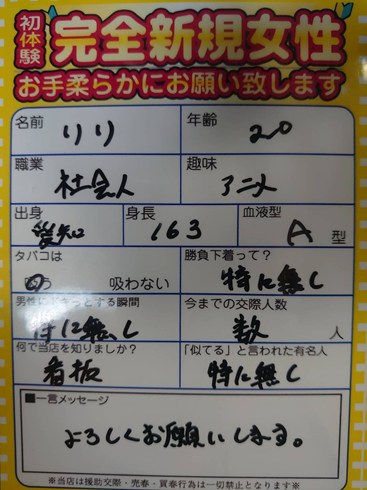 初体験 完全新規女性
お手柔らかにお願い致します
名前 りり 年齢 20
職業 社会人 趣味 アニメ
出身 愛知 身長 163 血液型 A 型
タバコは 吸う 吸わない 勝負下着って? 特に無し
男性にドキッとする瞬間 特に無し 今までの交際人数 数 人
何で当店を知りましたか? 看板 「似てる」と言われた有名人 特に無し
■一言メッセージ
よろしくお願いします。
※当店は援助交際・売春・買春行為は一切禁止となります※